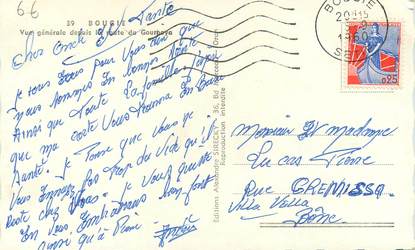 66
39 BOUGIE
Vue générale depuis la route du Gouraya
Cher Oncle et Tante
Je vous écris pour vous dire que
nous sommes en bonne santé
Ainsi que toute la famille j'espère
que ma carte vous trouvera en Bonne
Santé. Je pense que vous ne
vous ennuyez pas trop du vide qu'il
reste chez vous. Je vous quitte
en vous embrassant bien fort
ainsi qu'à Pierre
Editions Alexandre SIRECKY 36, Bd
Reproduction interdite
BOUGIE
20H15
1960
SETIF
0,25
Monsieur Et madame
Lucas Pierre
Rue CREMISSA
Villa Vella
Bône